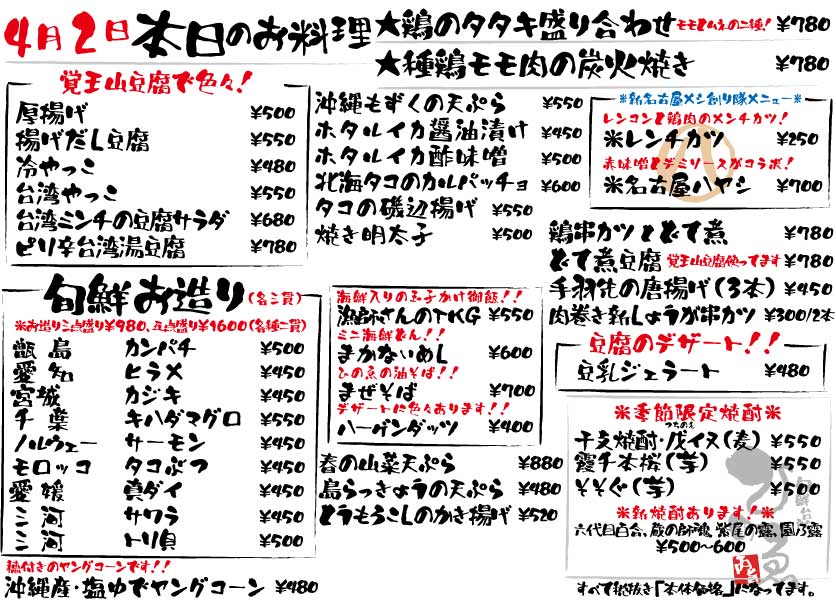 4月2日 本日のお料理
★鶏のタタキ盛り合わせ モモとムネの二種! ¥780
★種鶏モモ肉の炭火焼き ¥780
覚王山豆腐で色々!
厚揚げ ¥500
揚げだし豆腐 ¥550
冷やっこ ¥480
台湾やっこ ¥550
台湾ミンチの豆腐サラダ ¥680
ピリ辛台湾湯豆腐 ¥780
沖縄もずくの天ぷら ¥550
ホタルイカ醤油漬け ¥450
ホタルイカ酢味噌 ¥500
北海タコのカルパッチョ ¥600
タコの磯辺揚げ ¥550
焼き明太子 ¥500
※新名古屋メシ創り隊メニュー※
レンコンと鶏肉のメンチカツ!
※レンチカツ ¥250
赤味噌とデミソースがコラボ!
※名古屋ハヤシ ¥700
鶏串カツとどて煮 ¥780
どて煮豆腐 覚王山豆腐使ってます ¥780
手羽先の唐揚げ(3本) ¥450
肉巻き新しょうが串カツ ¥300/2本
旬鮮お造り(名二貫)
※お造り三点盛り¥980、五点盛り¥1600(各種二貫)
甑島 カンパチ ¥500
愛知 ヒラメ ¥450
宮城 カジキ ¥450
千葉 キハダマグロ ¥550
ノルウェー サーモン ¥450
モロッコ タコぶつ ¥450
愛媛 真ダイ ¥450
三河 サワラ ¥450
三河 トリ貝 ¥500
穂付きのヤングコーンです!!
沖縄産・塩ゆでヤングコーン ¥480
海鮮入りの玉子かけ御飯!!
漁師さんのTKG ¥550
ミニ海鮮どん!!
まかないめし ¥600
ひの魚の油そば!!
まぜそば ¥700
デザートに色々あります!!
ハーゲンダッツ ¥400
春の山菜天ぷら ¥880
島らっきょうの天ぷら ¥480
とうもろこしのかき揚げ ¥520
豆腐のデザート!!
豆乳ジェラート ¥480
※季節限定焼酎※
つちのえ
干支焼酎・戊イヌ(麦) ¥550
霞千本桜(芋) ¥550
そそぐ(芋) ¥500
※新焼酎あります!※
六代目百合、蔵の師魂、紫尾の露、園乃露
¥500~600
すべて税抜き「本体価格」になってます。